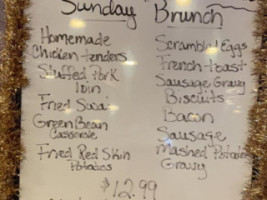 Sunday Brunch
Homemade
Chicken tenders
Stuffed Pork
loin
Fried
Green Bean
Casserole
Fried Red Skin
Potatoes
Scrambled Eggs
French toast
Sausage Gravy
Biscuits
Bacon
Sausage
Mashed Potatoes
Gravy
$12.99